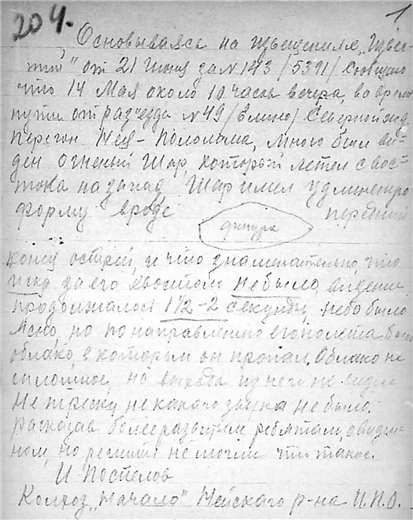 204. 1
Основываясь на извещениях „Извес-
тий" от 21 Июня за № 143 /5391/ сообщаю
что 14 Мая около 10 часов вечера, во время
пути от разъезда № 49 /близко/ Северной ж.д.
перегон Нея - Полома, мною был ви-
ден огненый шар который летел с вос-
тока на запад Шар имел удлиненную
форму вроде передний
фигура
конец острей, и что знаменательно, что
искр за его хвостом не было, видение
продолжалось 1½-2 секунды, небо было
ясно, но по направлению его полета было
облако, в котором он пропал. Облако не
сплошное, но вылета из него не видел
Не треску не какого звука не было.
Рассказав более развитым ребятам, о виден-
ном, но решить не могли что такое.
И Поспелов
Колхоз „Начало" Нейского р-на И.П.О.